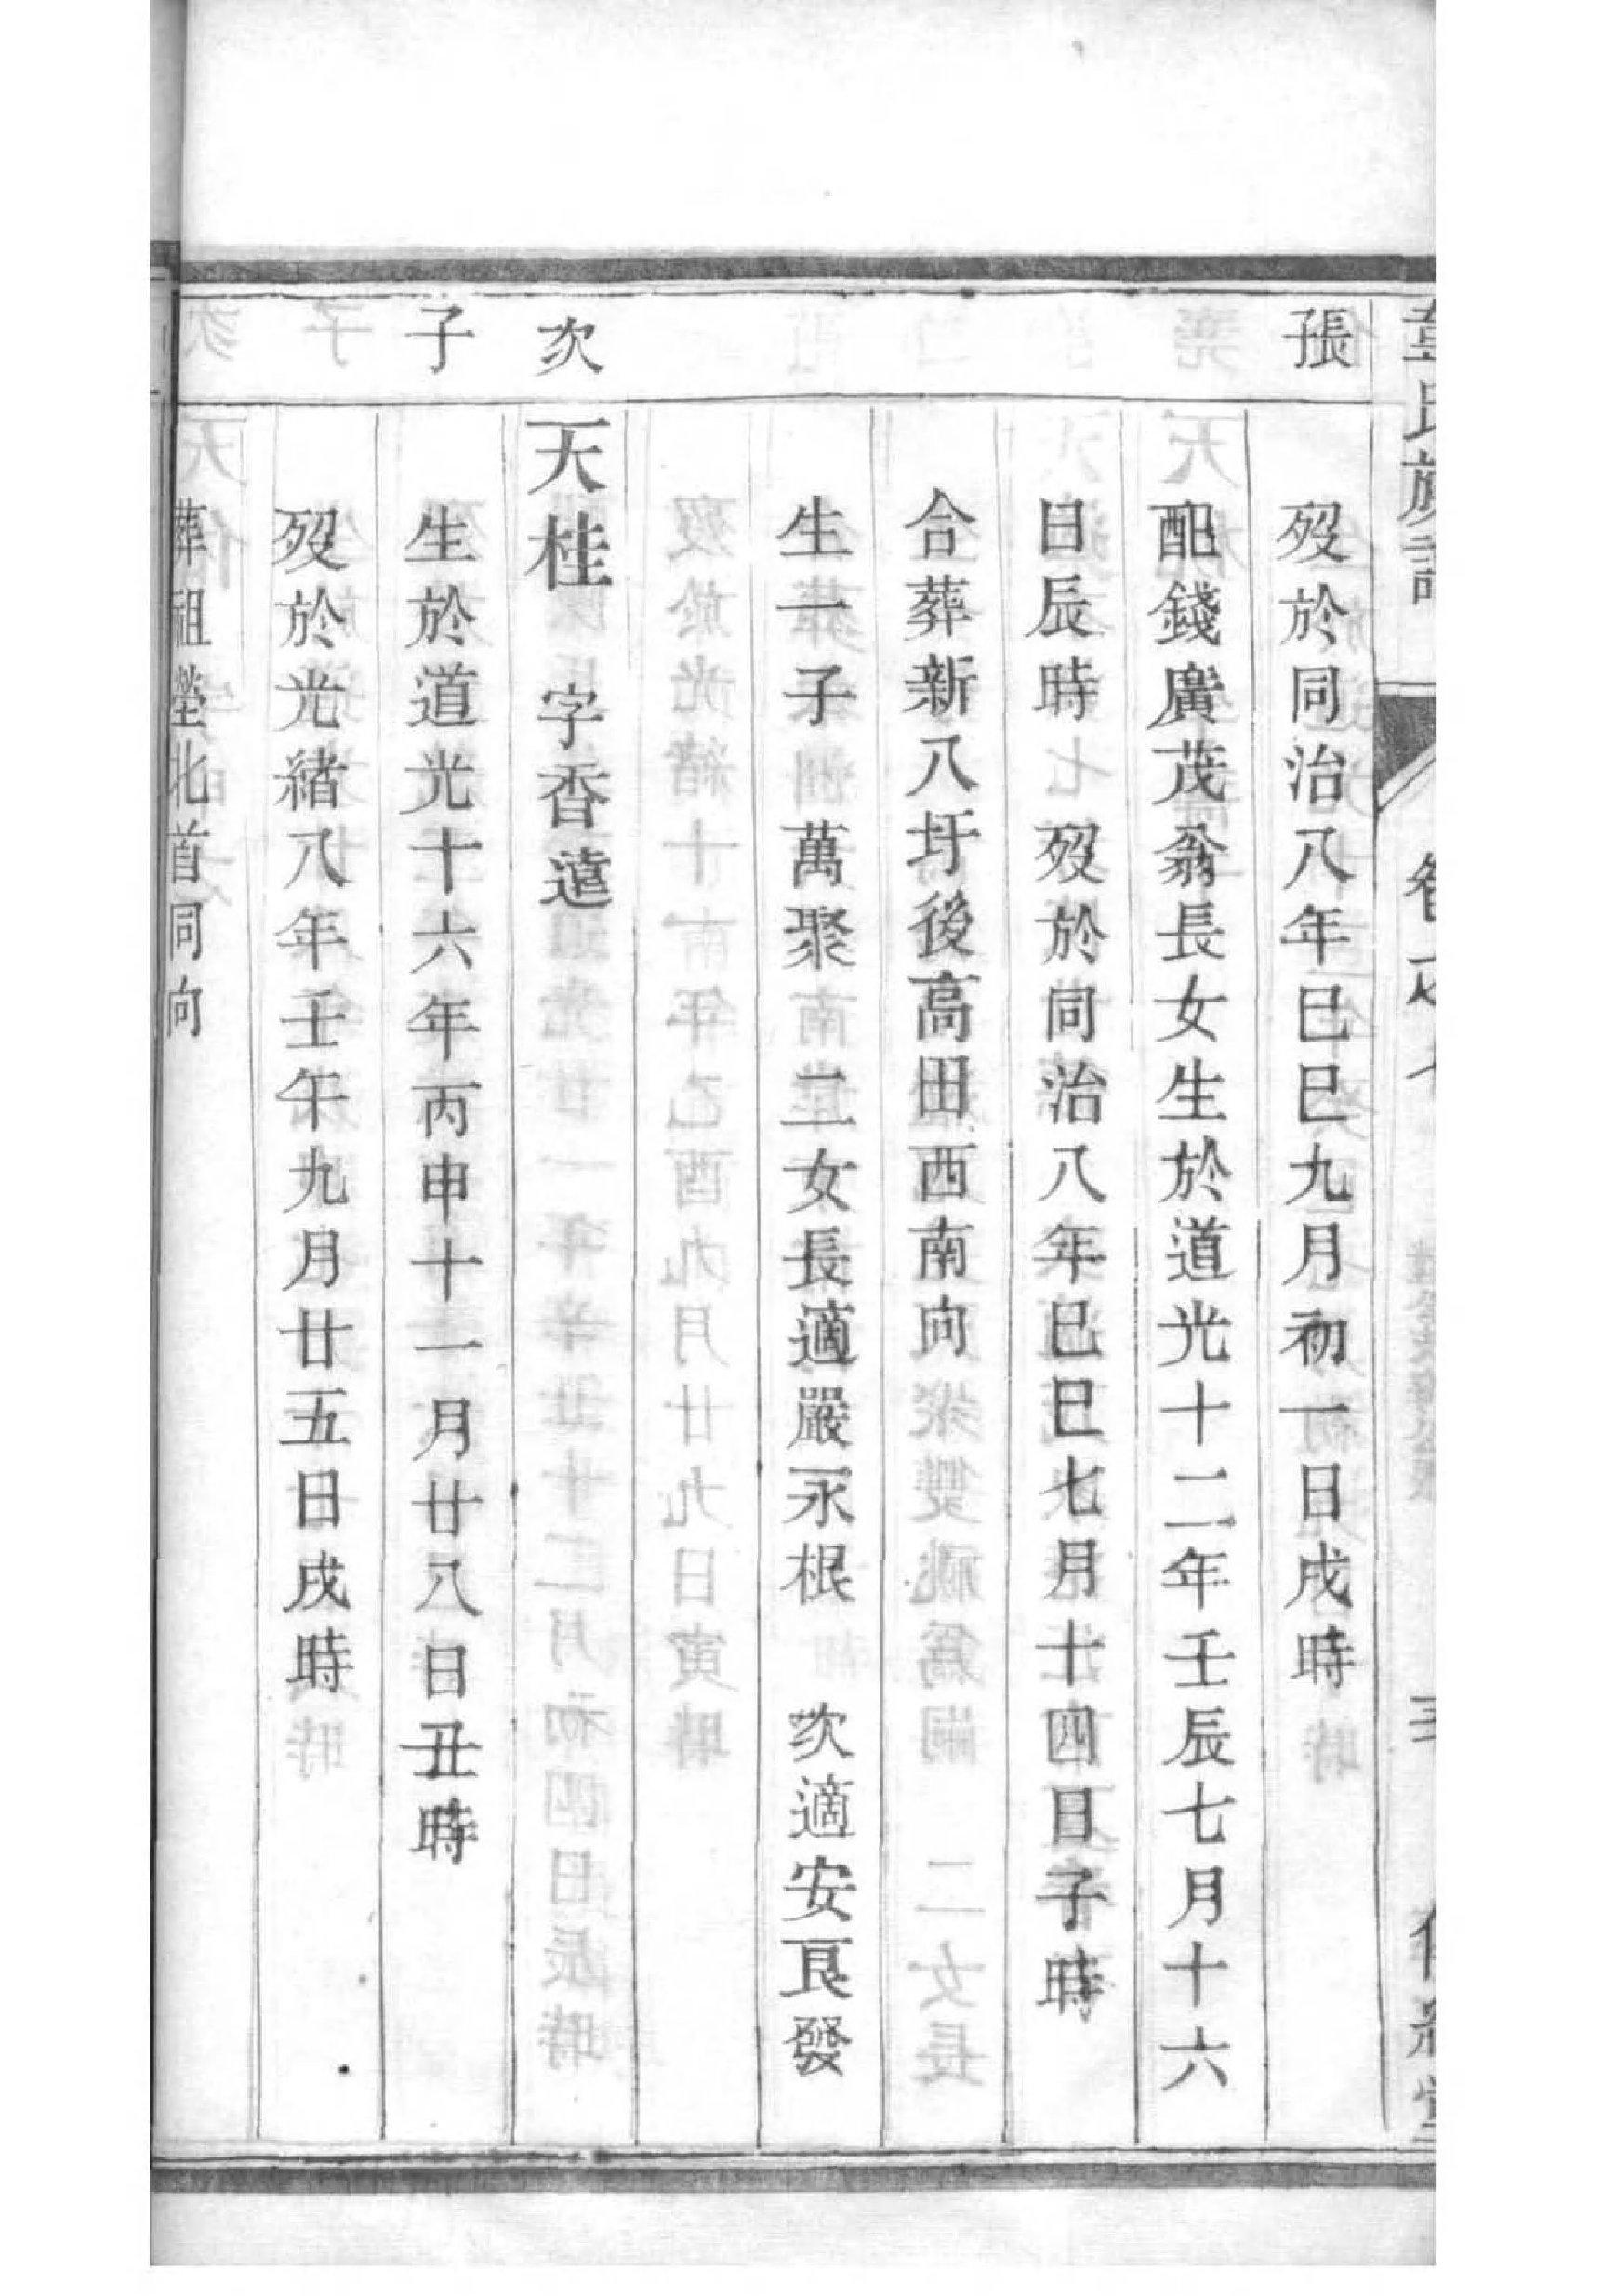 張
歿於同治八年巳巳九月初一日戌時
配錢廣茂翁長女生於道光十二年壬辰七月十六
日辰時 歿於同治八年巳巳七月十四日子時
合葬新八圩後高田西南向
生一子 萬聚 二女長適嚴永根 次適安良發
次 天桂 字香遠
子 生於道光十六年丙申十一月廿八日丑時
歿於光緒八年壬午九月廿五日戌時
葬祖塋北首同向